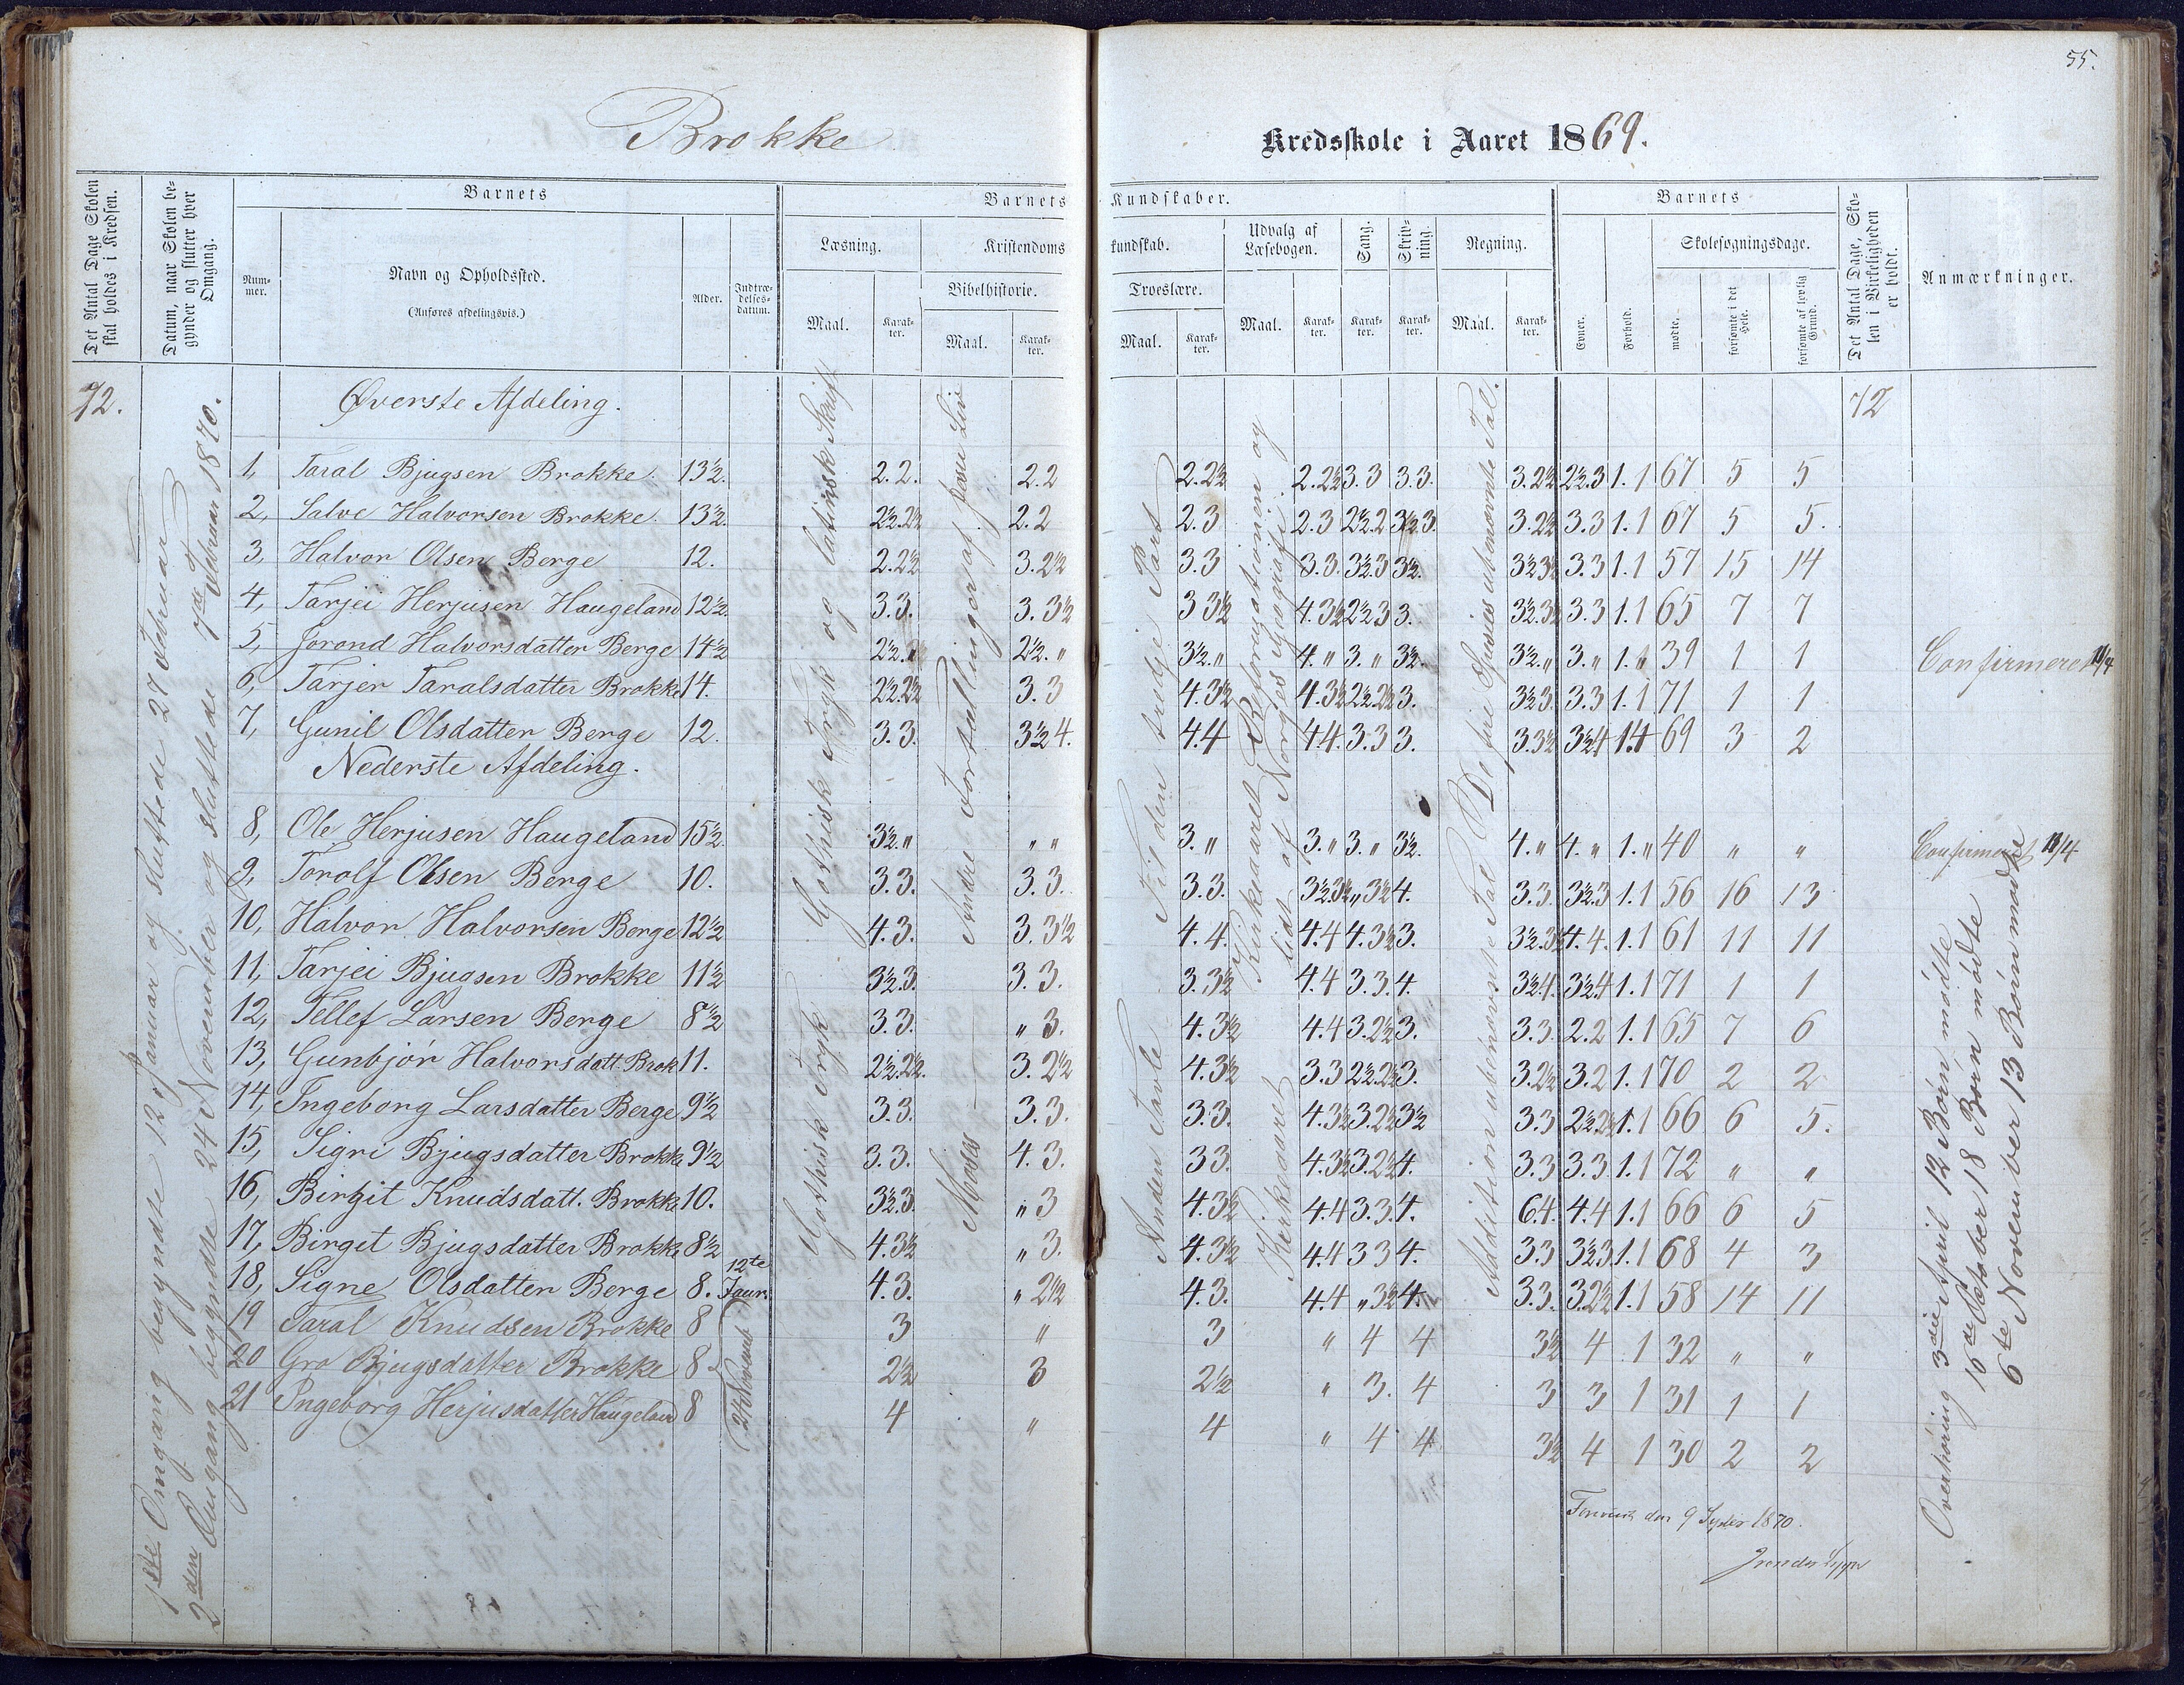 55.
Brokke
Kredsskole i Aaret 1869.
Det Antal Dage Skolen skal holdes i Kredsen.
Datum, naar Skolen begynder og slutter hver Omgang.
Barnets
Nummer.
Navn og Opholdssted.
(Anføres afdelingsvis.)
Alder.
Indtrædelsesdatum.
Barnets Kundskaber.
Læsning.
Maal.
Karakter.
Kristendomskundskab.
Bibelhistorie.
Maal.
Karakter.
Troeslære.
Maal.
Karakter.
Udvalg af Læsebogen.
Maal.
Karakter.
Sang.
Karakter.
Skrivning.
Karakter.
Regning.
Maal.
Karakter.
Barnets
Evner.
Forhold.
Skolesøgningsdage.
mødte.
forsømte i det Hele.
forsømte af lovlig Grund.
Det Antal Dage, Skolen i Virkeligheden er holdt.
Anmærkninger.
72.
Øverste Afdeling.
72
1, Taral Bjugsen Brokke. 13½. 2.2. 2.2 2.2½ 2.2½ 3.3 3.3. 3.2½ 2½.3 1.1 67 5 5
2, Salve Halvorsen Brokke. 13½. 2½.2½ 2.2 2.3 2.3 2½.2 3½.3. 3.2½ 3.3 1.1 67 5 5.
3, Halvor Olsen Berge 12. 2.2½ 3.2½ 3.3 3.3. 3½.3 3½. 3½3½ 3.3 1.1 57 15 14
4, Tarjei Herjusen Haugeland 12½. 3.3. 3.3½ 3 3½ 4.3½ 2½3 3. 3½.3½ 3.3 1.1 65 7 7
5, Jorond Halvorsdatter Berge 14½ 2½." 2½." 3½." 4." 3." 3½. 3½." 3." 1." 39 1 1 Confirmeret 11/4
6, Tarjer Taralsdatter Brokke 14. 2½.2½ 3.3 4.3½ 4.3½ 2½.2½ 3. 3½3. 3.3 1.1 71 1 1
7, Gunil Olsdatter Berge 12. 3.3. 3½4. 4.4 4.4. 3.3 3. 3.3½ 3½4 1.1 69 3 2
Nederste Afdeling.
8, Ole Herjusen Haugeland 15½ 3½." " " 3." 3." 3." 3½. 4." 4." 1." 40 " " Confirmeret 11/4
9, Torolf Olsen Berge 10. 3.3. 3.3. 3.3. 3½3½ "3½ 4. 3.3. 3½.3 1.1 56 16 13
10, Halvor Halvorsen Berge 12½ 4.3. 3.3½ 4.4. 4.4 4.3½ 3. 3½.3½ 4.4. 1.1 61 11 11
11, Tarjei Bjugsen Brokke 11½ 3½.3. 3.3. 3.3½ 4.4 3.3. 4. 3½4. 3½4 1.1 71 1 1
12, Tellef Larsen Berge 8½ 3.3. "3. 4.3½ 4.4 3.2½ 3. 3.3. 2.2 1.1 65 7 6
13, Gunbjór Halvorsdatt. Brok 11. 2½.2½. 3.2½ 4.3½ 3.3 2½.2½ 3. 3.2½ 3.2 1.1 70 2 2
14, Ingeborg Larsdatter Berge 9½ 3.3. 3.3. 3.3. 4.3½ 3.2½ 3½ 3.3 2½.2½ 1.1 66 6 5.
15, Sigri Bjugsdatter Brokke 9½ 3.3. 4.3. 3 3. 4.3½ 3.2½ 4. 3.3 3.3 1.1 72 " "
16, Birgit Knudsdatt. Brokke 10. 3½.3. "3 4.3½ 4.4 3.3. 4. 6.4. 4.4 1.1 66 6 5
17, Birget Bjugsdatter Brokke 8½ 4.3½ "3. 4.3½ 4.4 3 3 4. 3.3 3½3 1.1 68 4 3
18, Signe Olsdatter Berge 8. 12te Janr. 4.3. "2½ 4.3. 4.4 "3½ 4. 3.3. 3.2½ 1.1 58 14 11
19 Taral Knudsen Brokke 8 3 " 3 " 4 4 3½ 4 1 32 " "
20 Gro Bjugsdatter Brokke 8 2½ 3 2½ " 3. 4 3 3 1 31 1 1
21 Ingeborg Herjusdatter Haugeland 8 4 " 4 " 4 4 3½ 4 1 30 2 2
24 Novemb
1ste Omgang begyndte 12 Januar og sluttede 27 Februar
2den Omgang begyndte 24 November og sluttede 7de Februar 1870.
Gothisk Tryk og latinsk Skrift
Gothisk Tryk
Andre Fortællinger af Jesu Liv
Moses
Til den tredje Part
Anden Tavle
Kirkeaaret Reformationen og
lidt af Norges Geografi.
Kirkeaaret
De fire Species ubenævnte Tal.
Addition ubenævnte Tal
Overhøring 3die April 12 Børn mødte
16de October 18 Børn mødte
6te November 13 Børn mødte
den 9 1870.